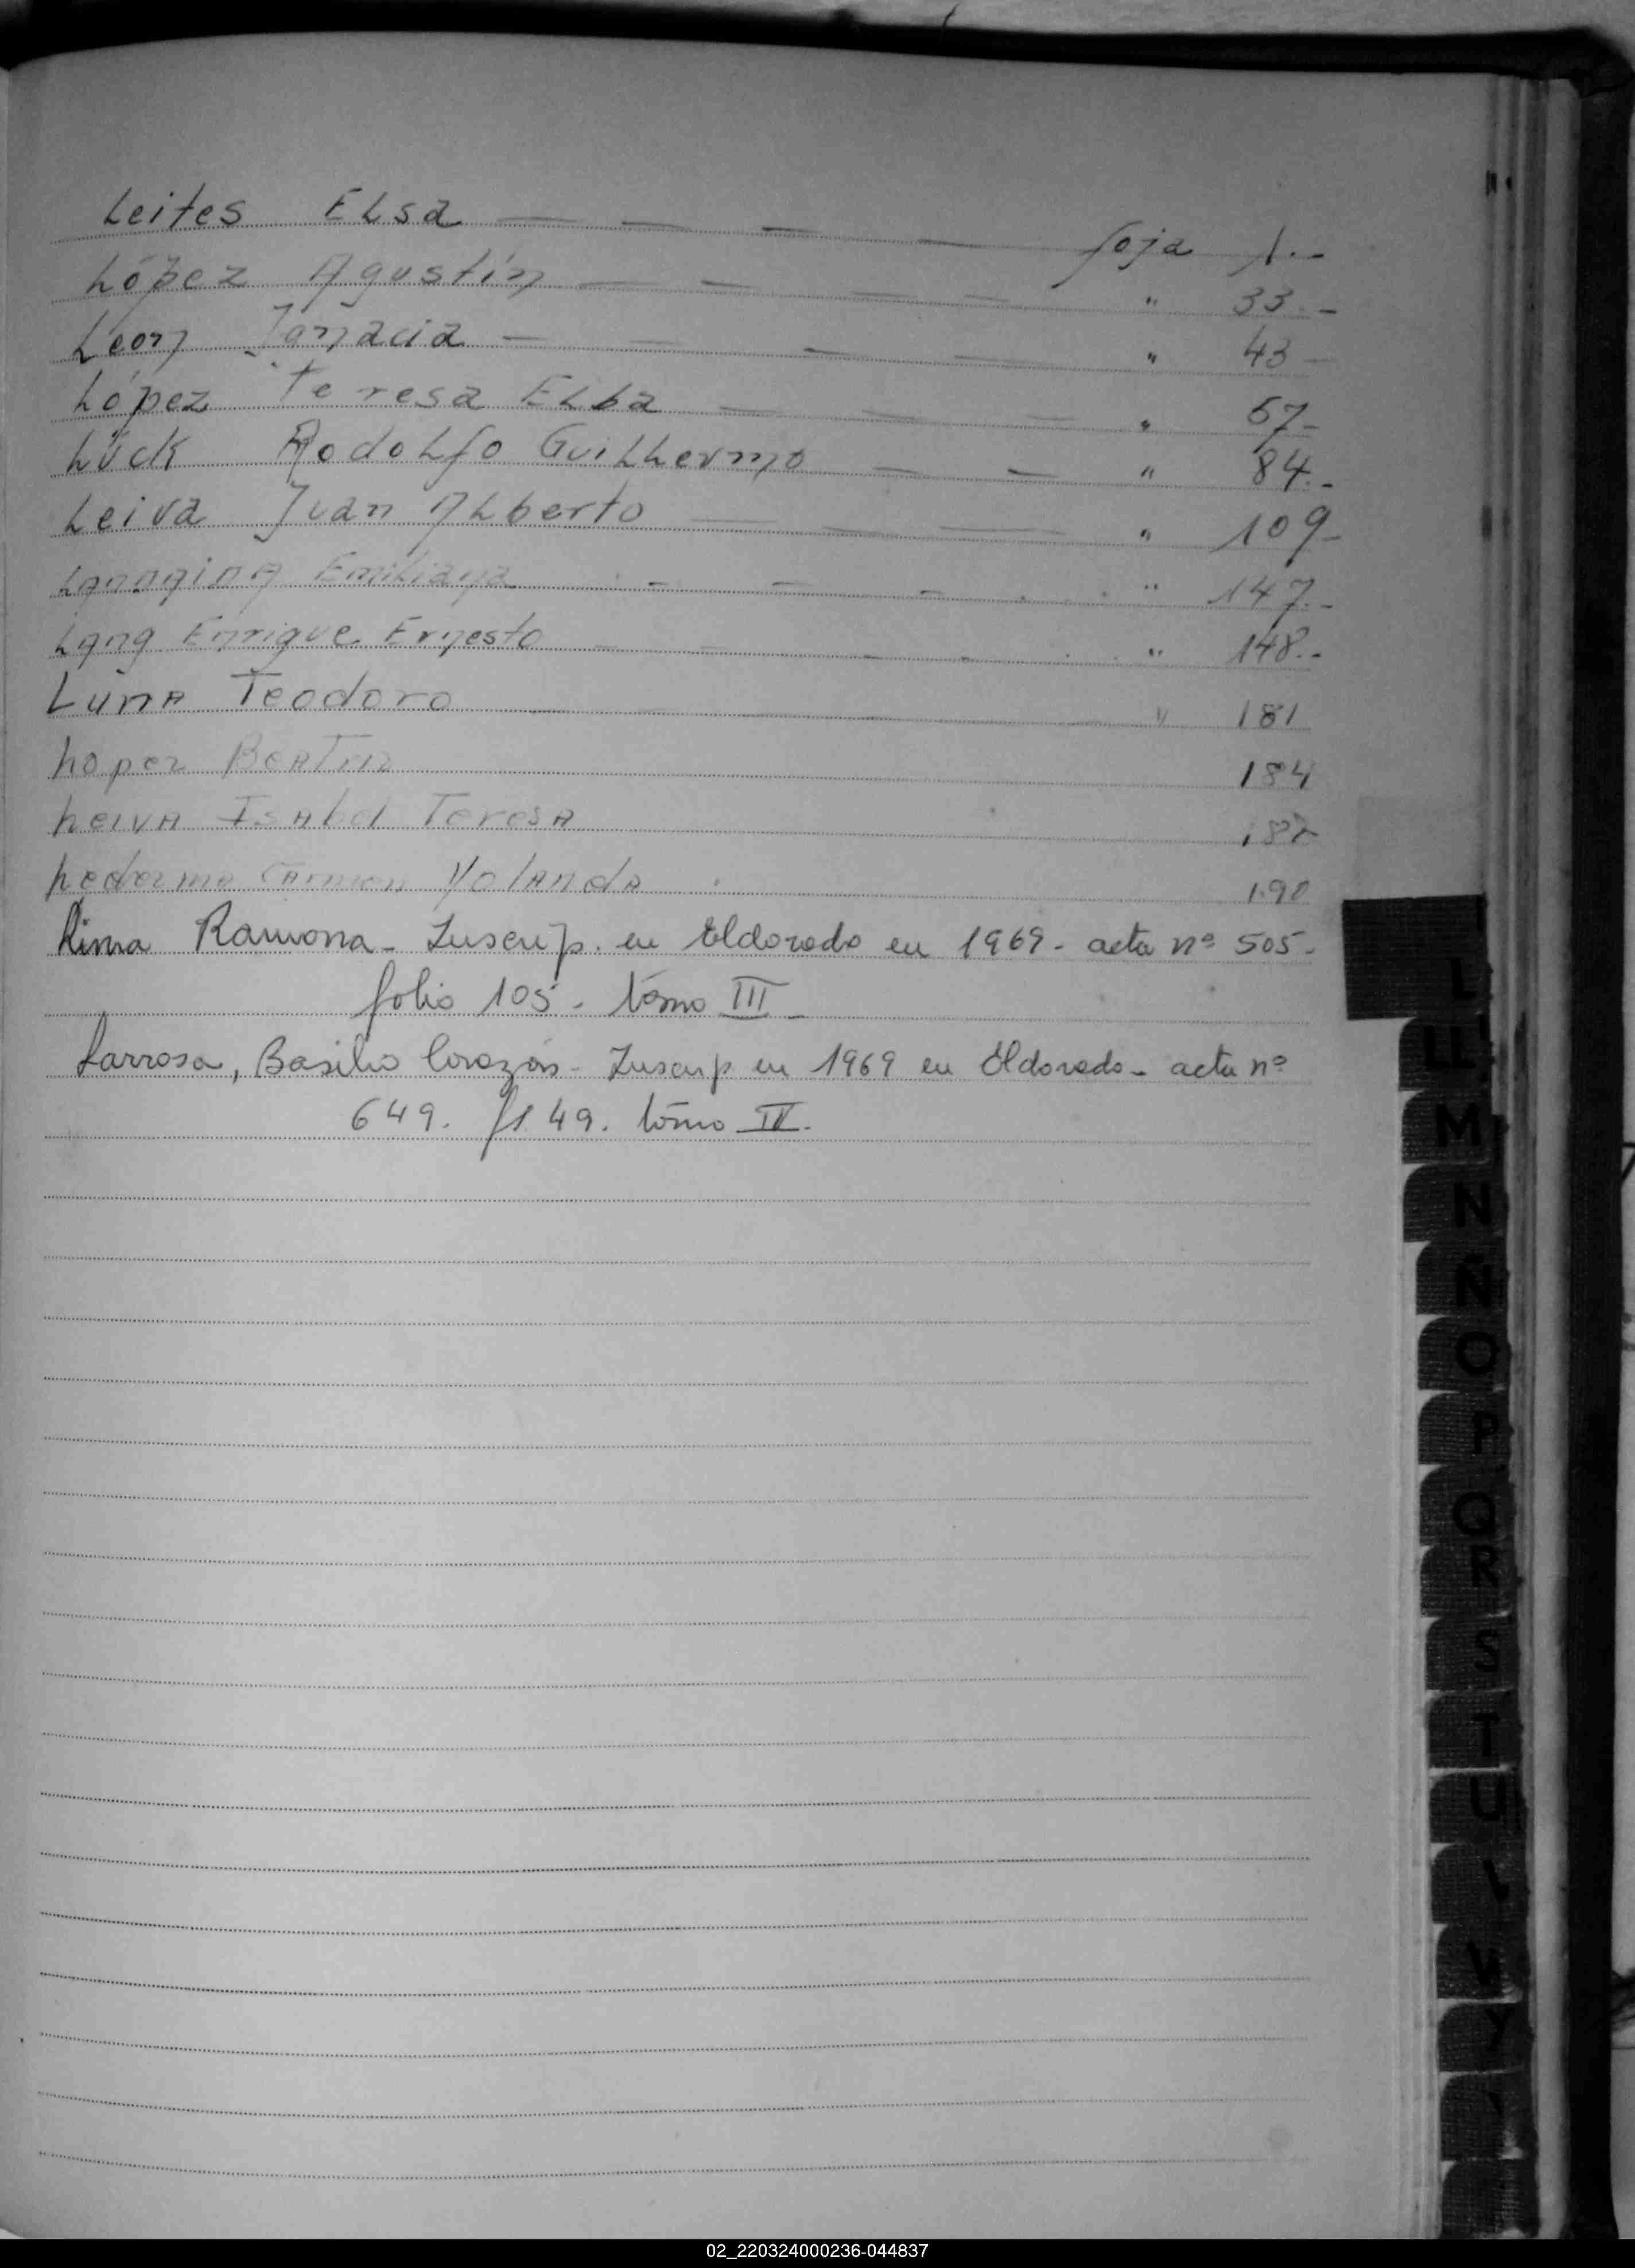 Leites Elsa — — — — foja 1.-
López Agustín — — — — " 33.-
Leon Ignacia — — — — " 43-
López Teresa Elba — — — " 67-
Lück Rodolfo Guillermo — — " 84.-
Leiva Juan Alberto — — — " 109-
Emiliana - - - " 147.-
Lang Enrique Ernesto - - - " 148.-
Luna Teodoro — — — " 181
Lopez Beatriz 184
Leiva Isabel Teresa
Ledesma Carmen Yolanda 190
Lima Ramona - Inscrip. en Eldorado en 1969 - acta nº 505-
folio 105 - tomo III -
Larrosa, Basilio Corazón - Inscrip en 1969 en Eldorado - acta nº
649. fl 49. tomo IV.
L
LL
M
N
Ñ
O
P
Q
R
S
T
U
V
Y
02_220324000236-044837